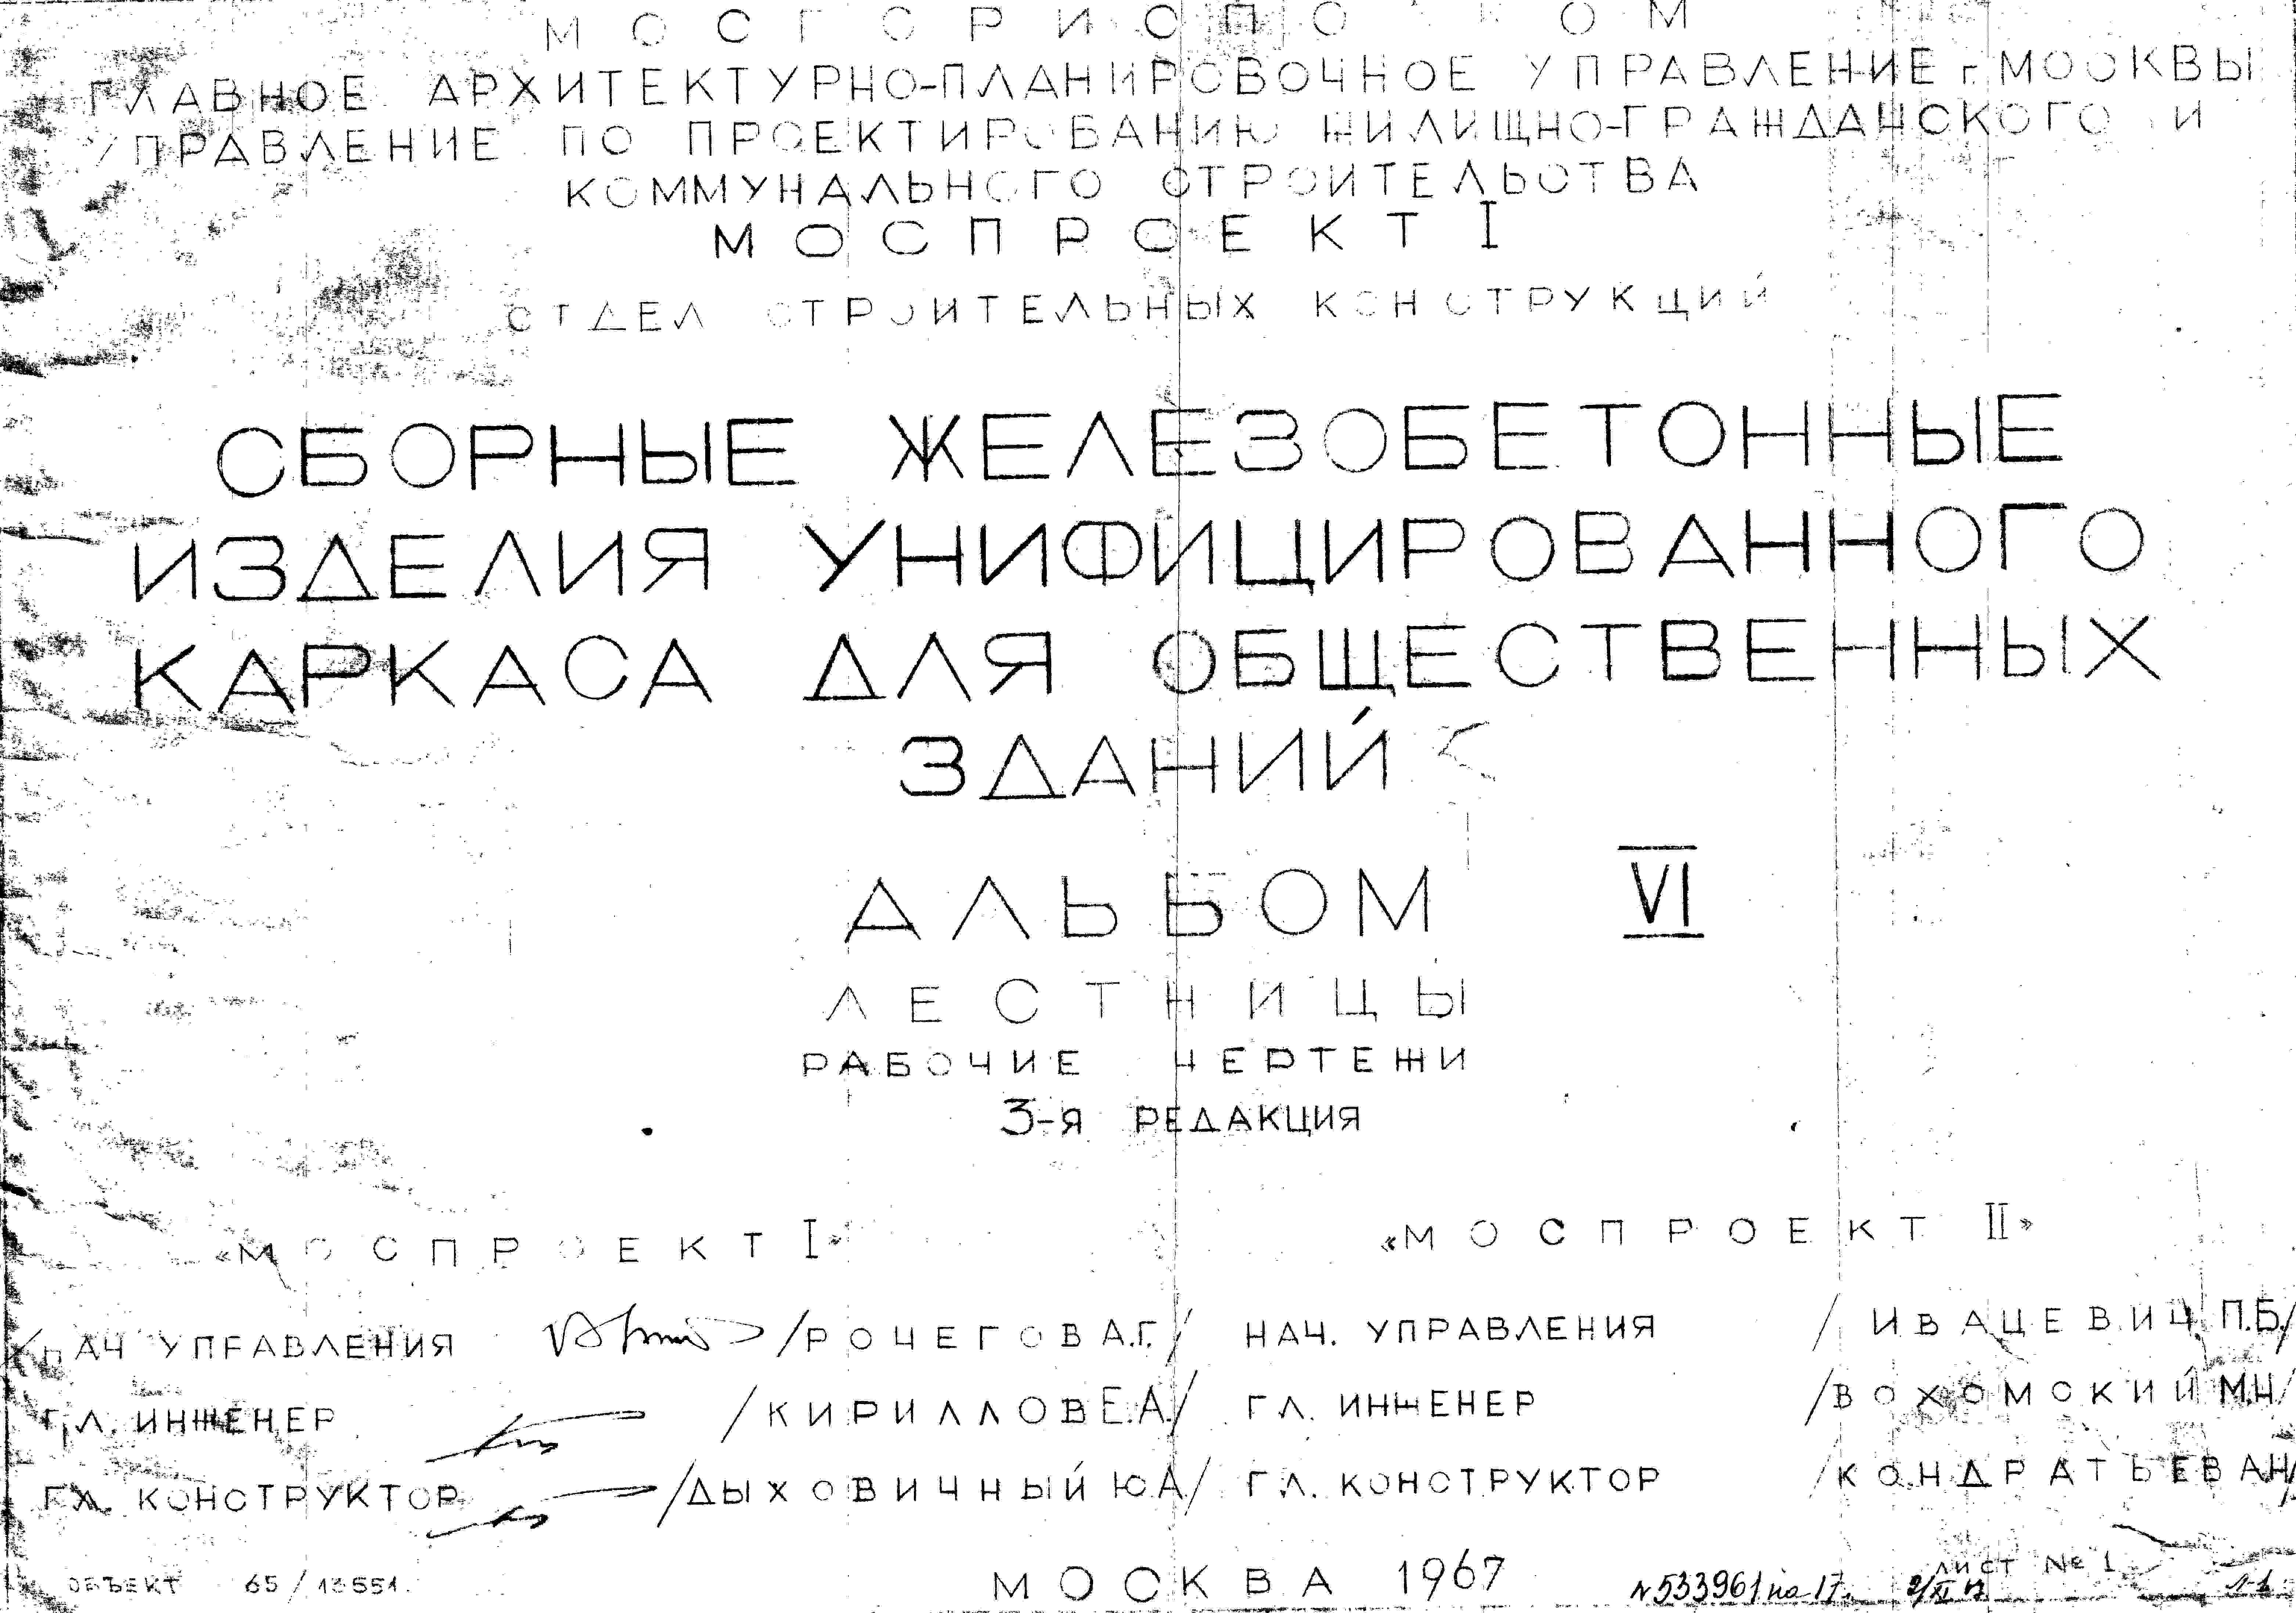 МОСГОРИСПОЛКОМ
ГЛАВНОЕ АРХИТЕКТУРНО-ПЛАНИРОВОЧНОЕ УПРАВЛЕНИЕ г. МОСКВЫ
УПРАВЛЕНИЕ ПО ПРОЕКТИРОВАНИЮ ЖИЛИЩНО-ГРАЖДАНСКОГО И
КОММУНАЛЬНОГО СТРОИТЕЛЬСТВА
МОСПРОЕКТ I
ОТДЕЛ СТРОИТЕЛЬНЫХ КОНСТРУКЦИЙ
СБОРНЫЕ ЖЕЛЕЗОБЕТОННЫЕ
ИЗДЕЛИЯ УНИФИЦИРОВАННОГО
КАРКАСА ДЛЯ ОБЩЕСТВЕННЫХ
ЗДАНИЙ
АЛЬБОМ VI
ЛЕСТНИЦЫ
РАБОЧИЕ ЧЕРТЕЖИ
3-Я РЕДАКЦИЯ
«МОСПРОЕКТ I» «МОСПРОЕКТ II»
НАЧ УПРАВЛЕНИЯ /РОЧЕГОВ А.Г./ НАЧ. УПРАВЛЕНИЯ /ИВАЦЕВИЧ П.Б./
ГЛ. ИНЖЕНЕР /КИРИЛЛОВ Е.А./ ГЛ. ИНЖЕНЕР /ВОХОМСКИЙ М.Н/
ГЛ. КОНСТРУКТОР /ДЫХОВИЧНЫЙ Ю.А/ ГЛ. КОНСТРУКТОР /КОНДРАТЬЕВ А.Н/
ОБЪЕКТ 65/13551. МОСКВА 1967 N533961 на 17. ЛИСТ № 1